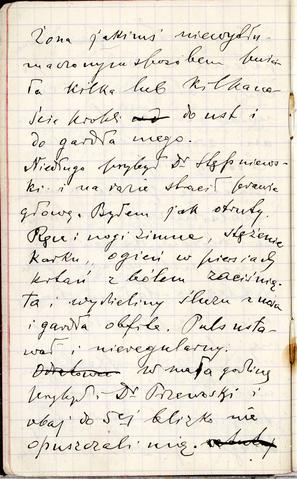 Żona jakimś niewytłu-
maczonym sposobem
ła kilka lub kilkana-
ście kropli do ust i
do gardła mego.
Niedługo przybył Dr Stępniews-
ki i na razie stracił prawie
głowę. Byłem jak otruty.
Ręce i nogi zimne, stężenie
karku, ogień w piersiach,
krtań z bólem zaciśnię-
ta i wydzieliny śluzu z nosa
i gardła obfite. Puls usta-
wał i nieregularny.
W małą godzinę
przybył Dr Przewoski i
obaj do 5ej blizko nie
opuszczali mię.